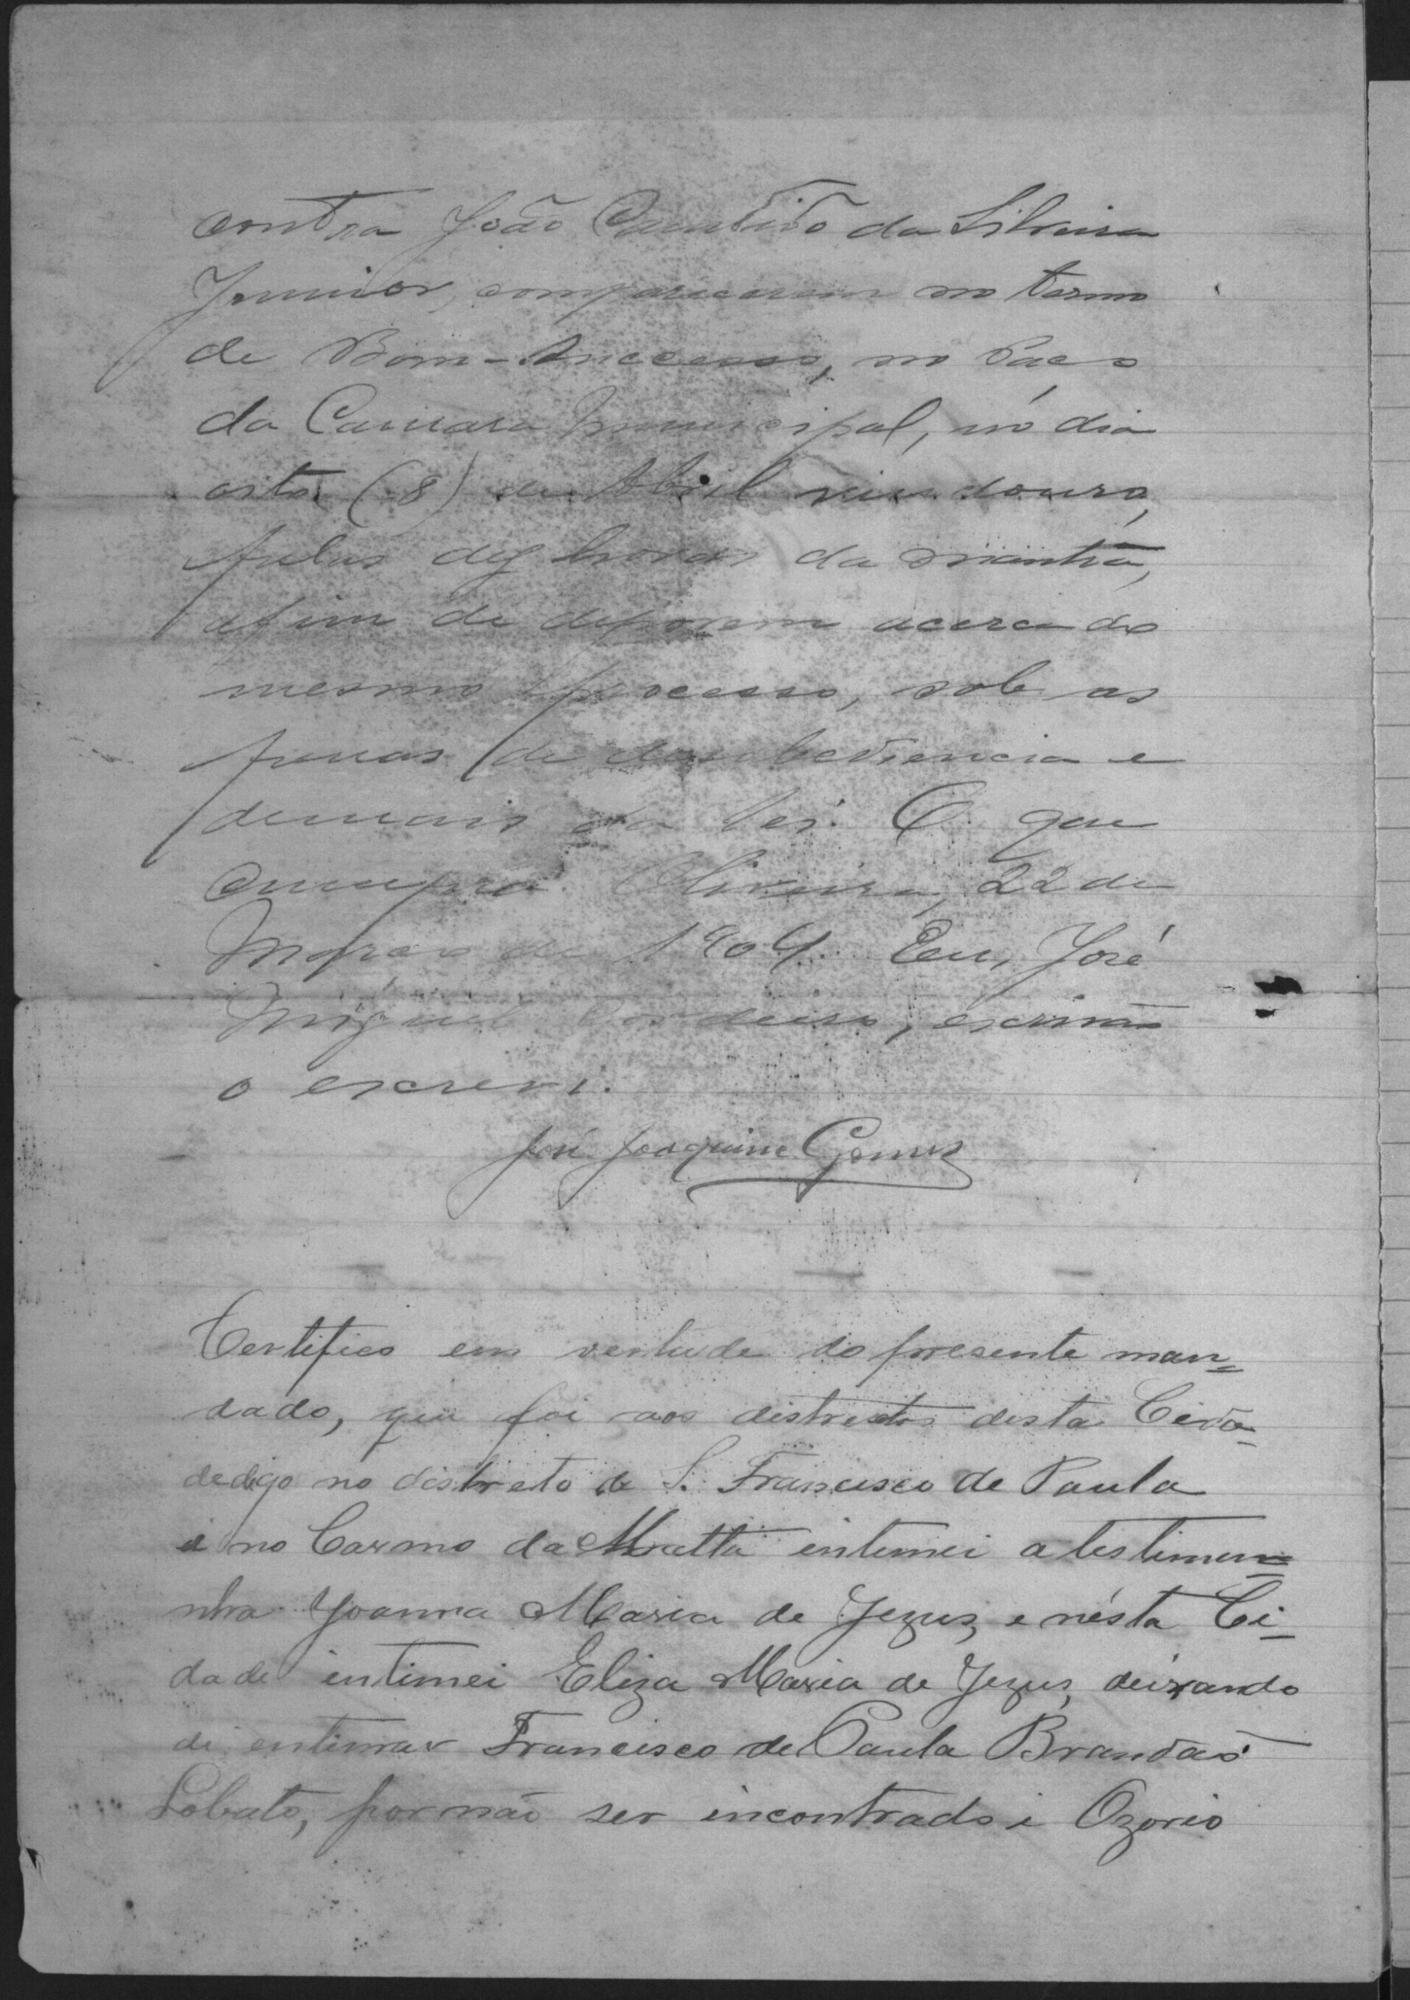 contra João Candido da Silveira
Junior, comparecerem no termo
de Bom-Successo, no Paço
da Camara Municipal, no dia
oito (8) de Abril vindouro,
pelas dez horas da manhã,
afim de deporem acerca do
mesmo processo, sob as
penas de desobediencia e
demais da lei. O que
cumpra. Oliveira, 22 de
Março de 1904. Eu, José
Miguel Cordeiro, escrivão
o escrevi.
José Joaquim Gomes
Certifico em vertude do presente man=
dado, que foi aos distrectos desta Cida-
de digo no distreto de S. Francisco de Paula
e no Carmo da Matta intimei a testimun=
nha Joanna Maria de Jezus, e nésta Ci-
dade intimei Eliza Maria de Jezus, deixando
de entimar Francisco de Paula Brandão
Lobato, por não ser incontrado i Ozorio